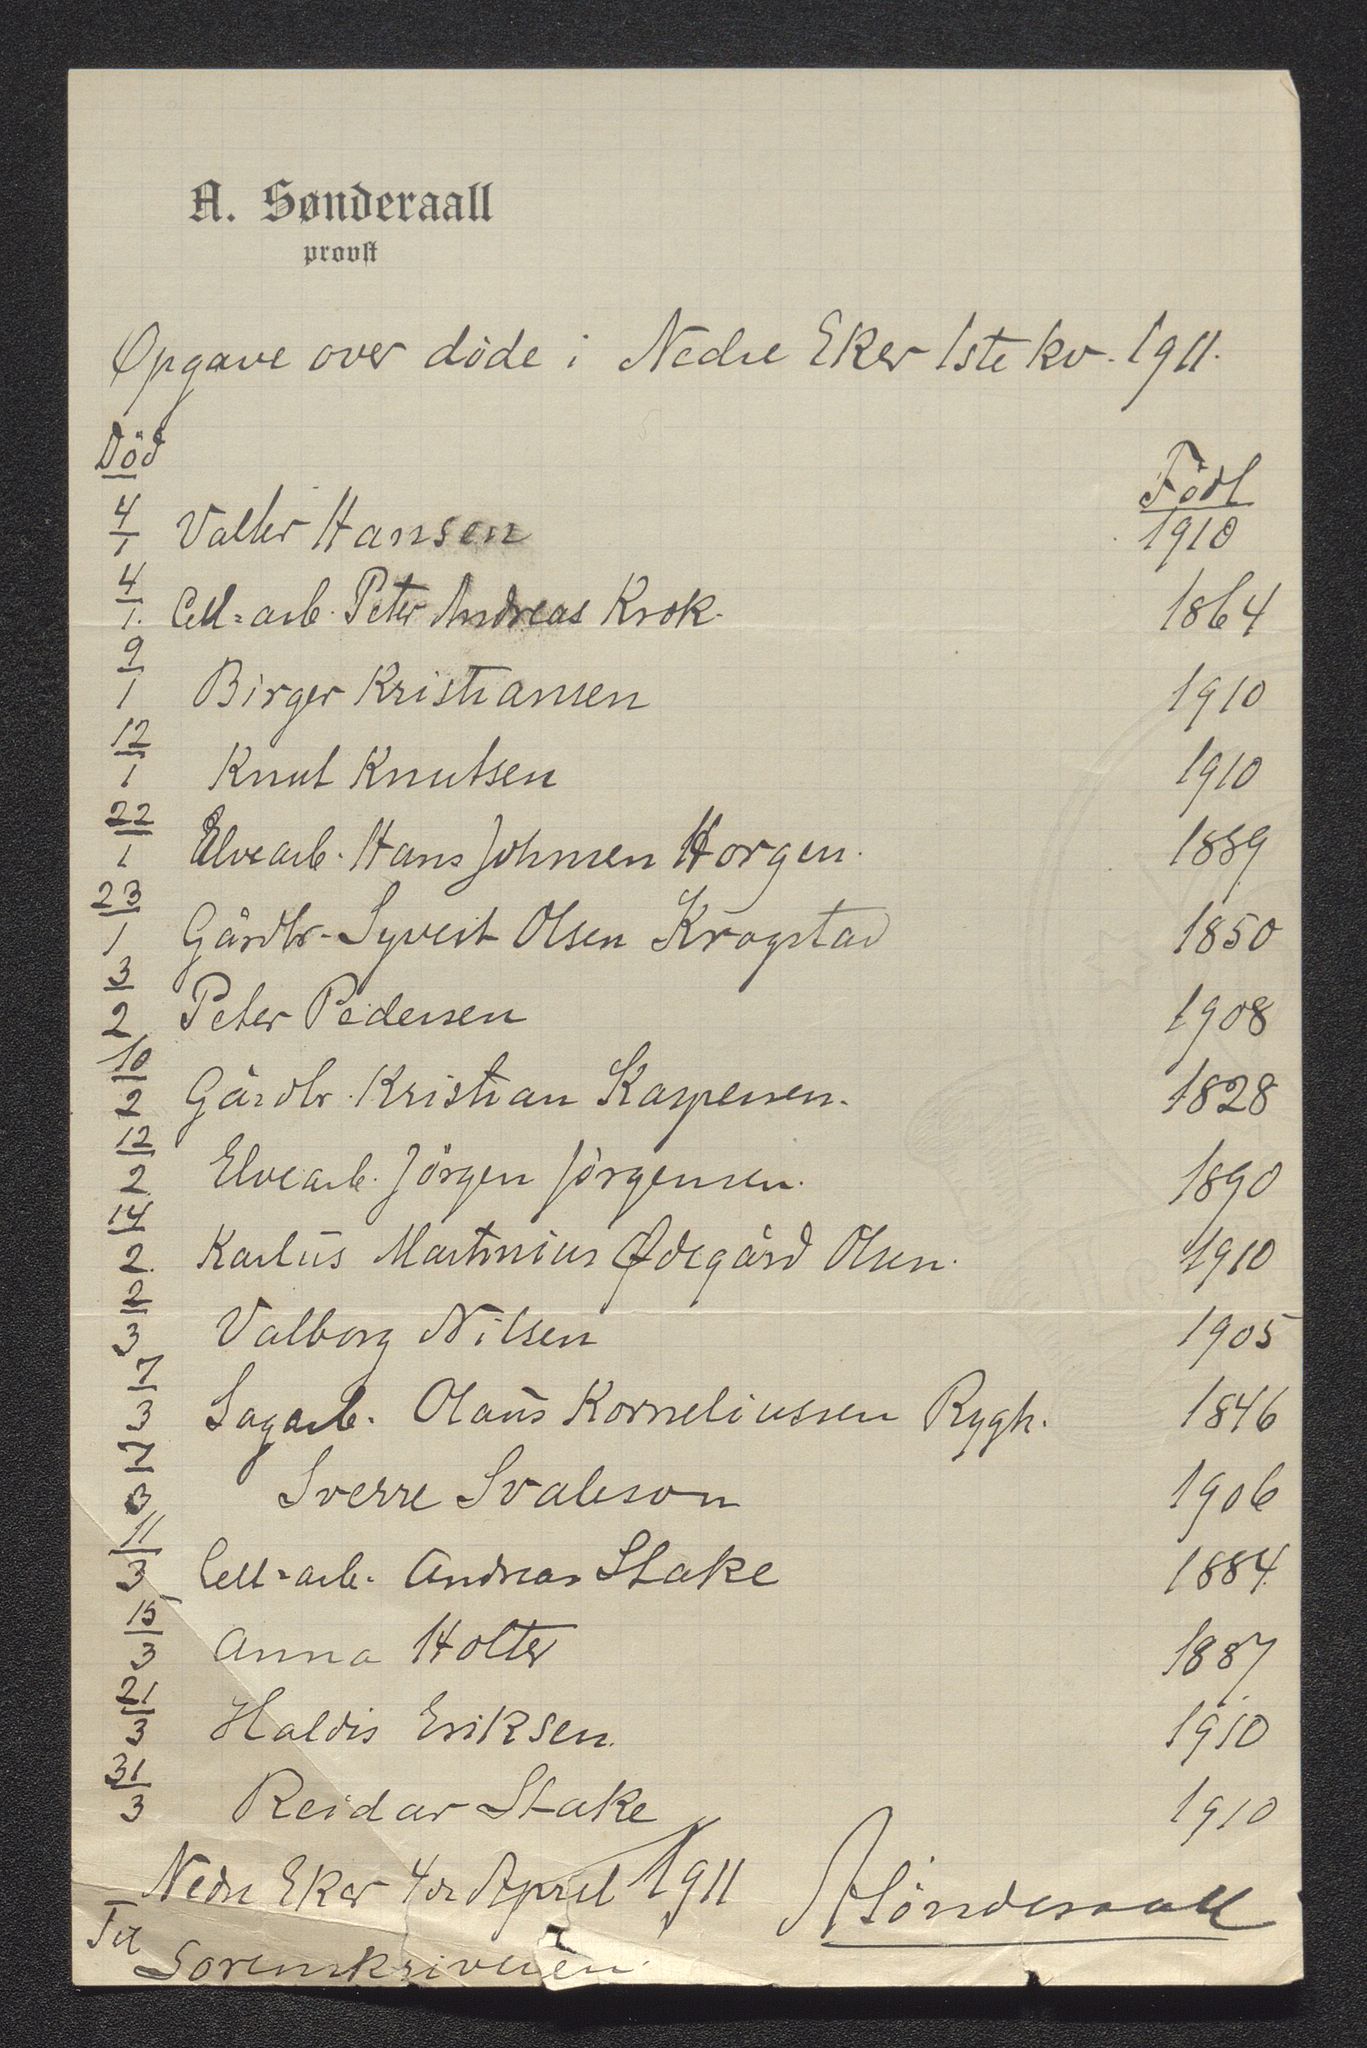 A. Sønderaall
provst
Opgave over døde i Nedre Eker 1ste kv. 1911.
Död
Födt
4/1 Valter Hansen 1910
4/1. Cell-arb. Peter Andreas Krok. 1864
9/1 Birger Kristiansen 1910
12/1 Knut Knutsen 1910
22/1 Elvearb. Hans Johnsen Horgen. 1889
23/1 Gårdbr. Syvert Olsen Krogstad 1850
3/2 Peter Pedersen 1908
10/2 Gårdbr. Kristian Kaspersen. 1828
12/2 Elvearb. Jörgen Jörgensen. 1890
14/2. Karlus Martinius Ødegård Olsen. 1910
2/3 Valborg Nilsen 1905
7/3 Sagarb. Olaus Korneliussen Rygh. 1846
7/3 Sverre Svaleson 1906
11/3 Cell-arb. Andreas Stake 1884
15/3 Anna Holter 1887
21/3 Haldis Eriksen. 1910
31/3 Reidar Stake 1910
Nedre Eker 4de April 1911 ASönderaall
Til
Sorenskriveren.